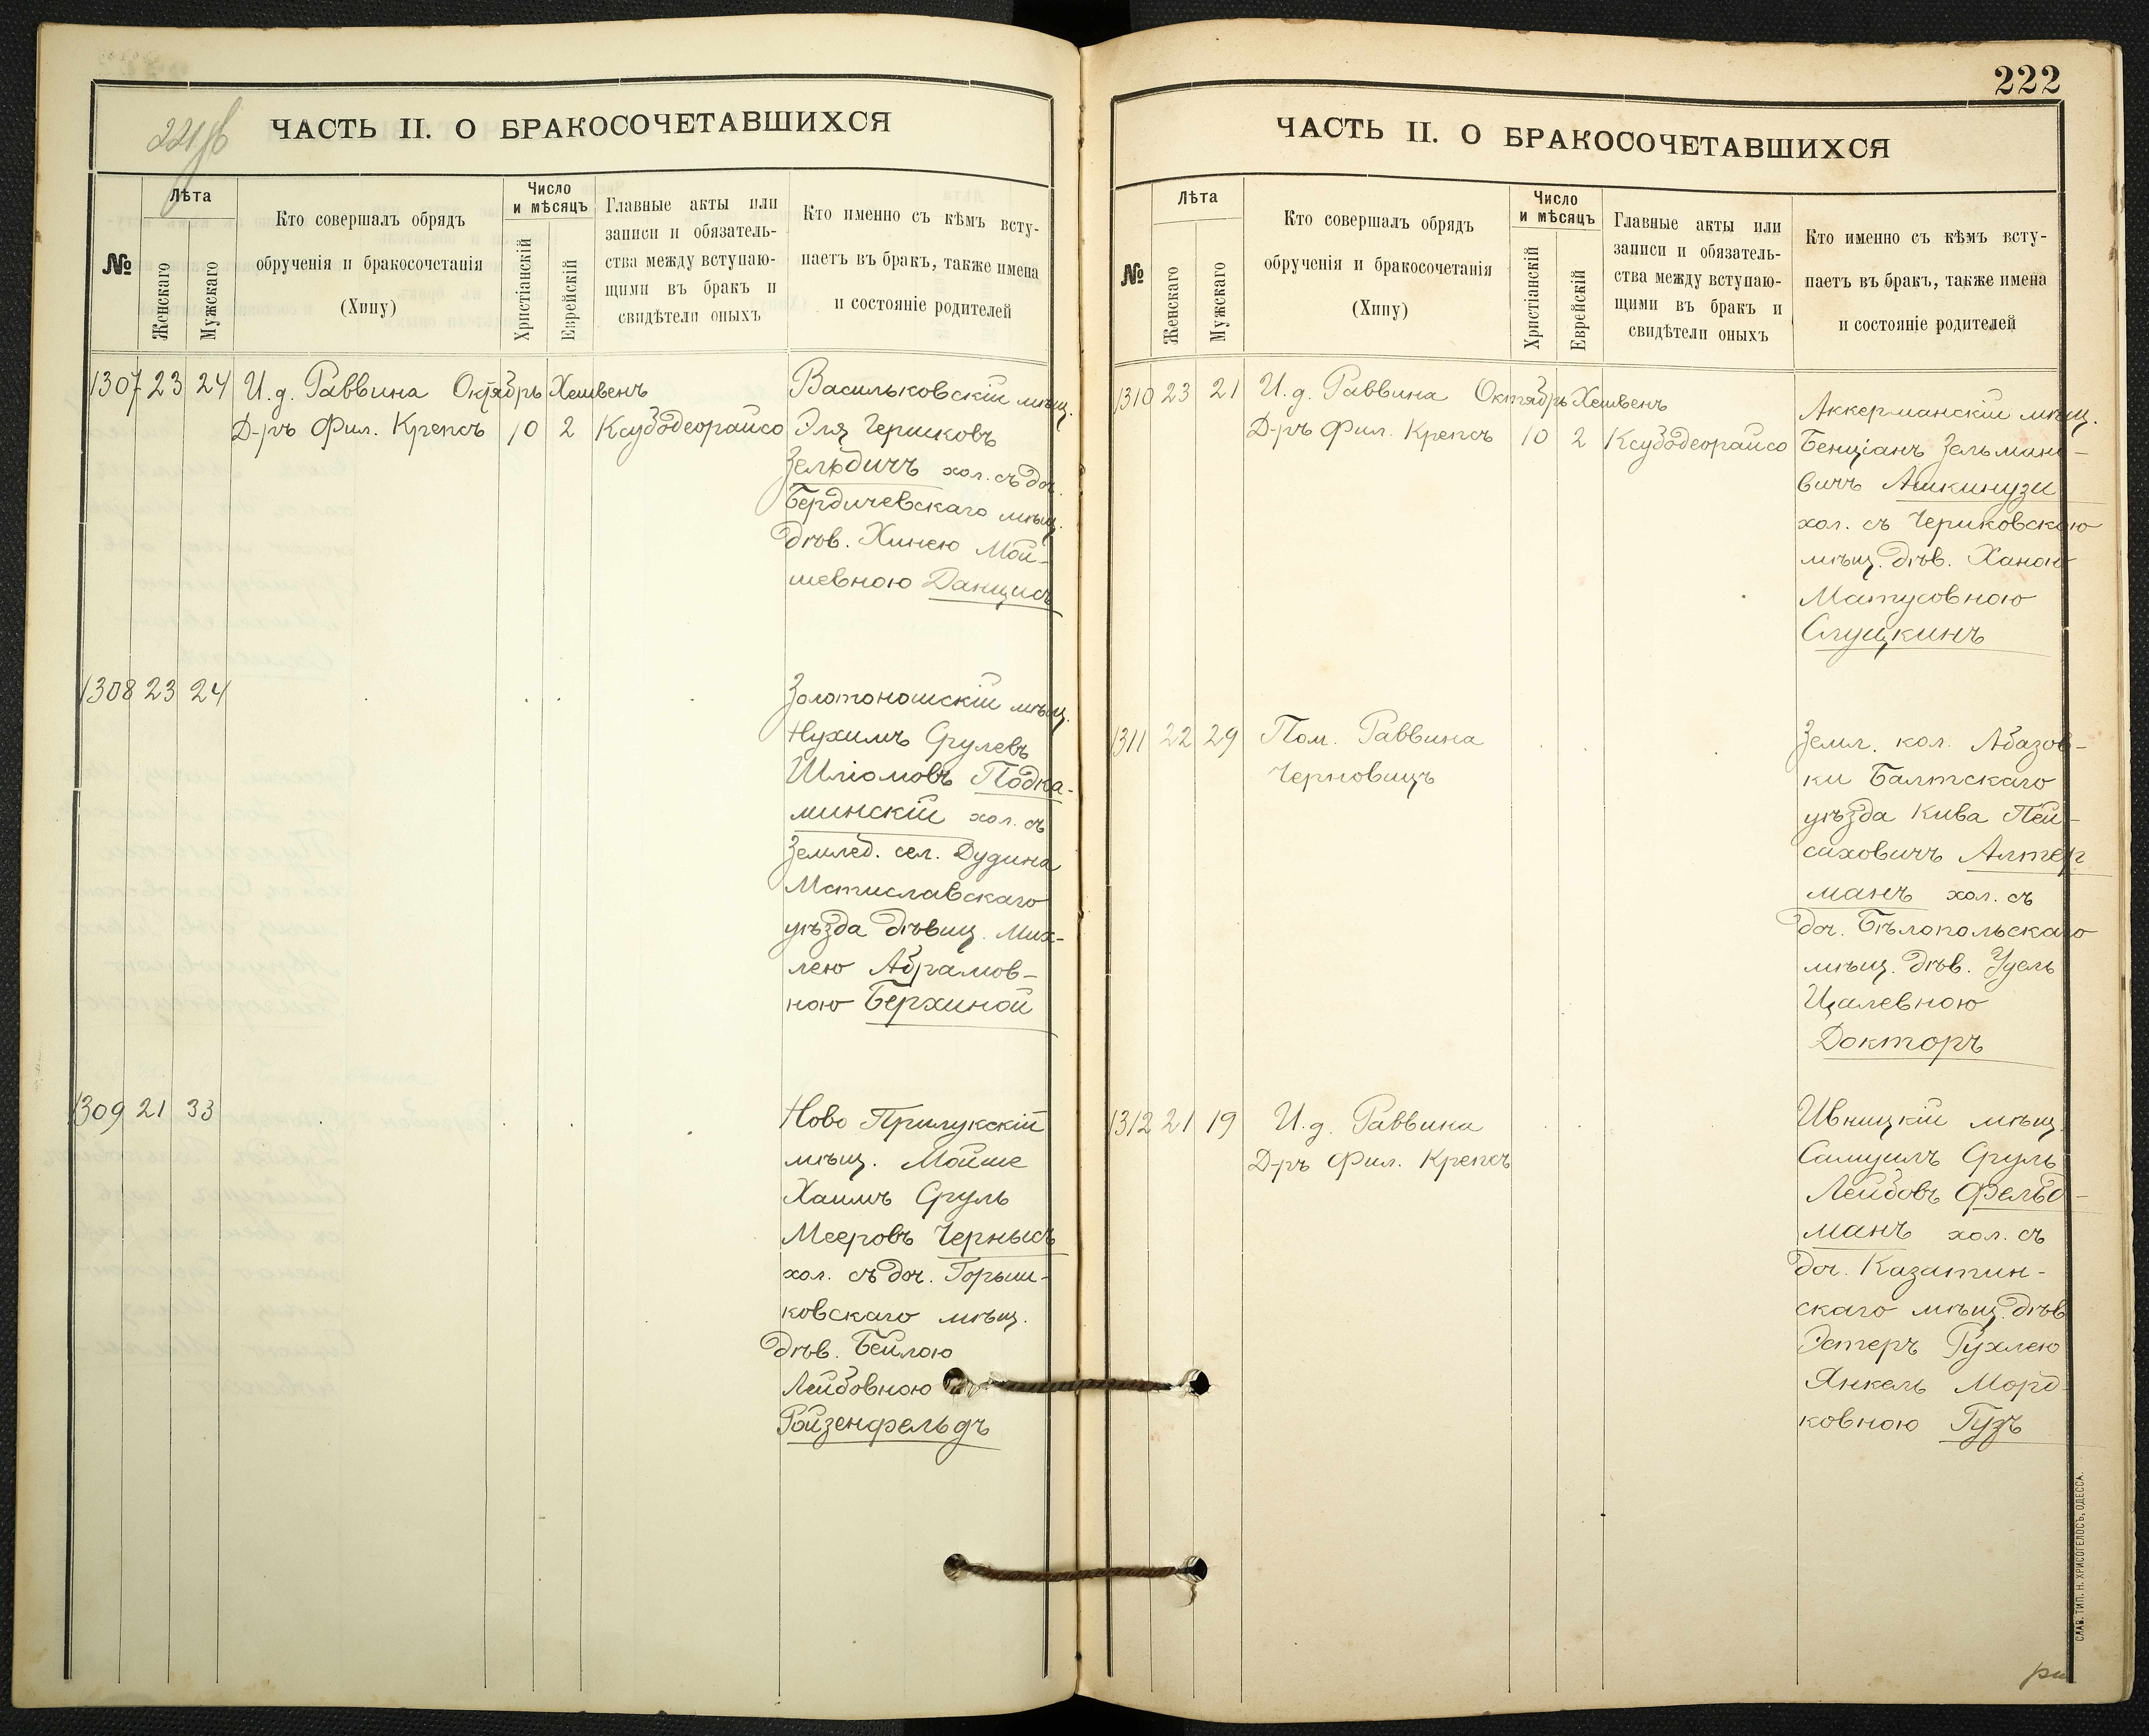 221об
ЧАСТЬ II. О БРАКОСОЧЕТАВШИХСЯ
№
Лѣта
Женскаго
Мужскаго
Кто совершалъ обрядъ
обрученія и бракосочетанія
(Хипу)
Число
и мѣсяцъ
Христіанскій
Еврейскій
Главные акты или
записи и обязатель-
ства между вступаю-
щими въ бракъ и
свидѣтели оныхъ
Кто именно съ кѣмъ всту-
паетъ въ бракъ, также имена
и состояніе родителей
1307 23 24 И. д. Раввина Октябрь Хешвенъ
Д-ръ Фил. Крепсъ 10 2 Ксубодеорайсо
Васильковскій мѣщ.
Эля Гершковъ
Зельдичъ хол. съ доч.
Бердичевскаго мѣщ.
дѣв. Хинею Мой-
шевною Данцисъ
1308 23 24
Золотоношскій мѣщ.
Нухимъ Срулевъ
Шліомовъ Подка-
минскій хол. съ
Землед. сел. Дудина
Мстиславскаго
уѣзда дѣвиц. Мих-
лею Абрамов-
ною Берхиной
1309 21 33
Ново Прилукскій
мѣщ. Мойше
Хаимъ Сруль
Мееровъ Чернысъ
хол. съ доч. Горыш-
ковскаго мѣщ.
дѣв. Бейлою
Лейбовною
Ройзенфельдъ
222
ЧАСТЬ II. О БРАКОСОЧЕТАВШИХСЯ
№
Лѣта
Женскаго
Мужскаго
Кто совершалъ обрядъ
обрученія и бракосочетанія
(Хипу)
Число
и мѣсяцъ
Христіанскій
Еврейскій
Главные акты или
записи и обязатель-
ства между вступаю-
щими въ бракъ и
свидѣтели оныхъ
Кто именно съ кѣмъ всту-
паетъ въ бракъ, также имена
и состояніе родителей
1310 23 21 И. д. Раввина Октябрь Хешвенъ
Д-ръ Фил. Крепсъ 10 2 Ксубодеорайсо
Аккерманскій мѣщ.
Бенціанъ Зельмано-
вичъ Ашкинузи
хол. съ Чериковскою
мѣщ. дѣв. Ханою
Матусовною
Слуцкинъ
1311 22 29 Пом. Раввина
Черновицъ
Земл. кол. Абазов-
ки Балтскаго
уѣзда Кива Пей-
саховичъ Алтер
манъ хол. съ
доч. Бѣлопольскаго
мѣщ. дѣв. Удель
Цалевною
Докторъ
1312 21 19 И. д. Раввина
Д-ръ Фил. Крепсъ
Ивницкій мѣщ.
Самуилъ Сруль
Лейбовъ Фельд-
манъ хол. съ
доч. Казатин-
скаго мѣщ. дѣв
Эстеръ Рухлею
Янкель Морд-
ковною Гузъ
СЛАВ. ТИП. Н. ХРИСОГЕЛОСЪ, ОДЕССА.